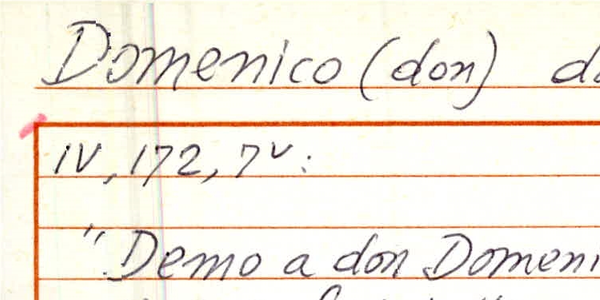 Domenico (don) d
IV, 172, 7v:
"Demo a don Domeni